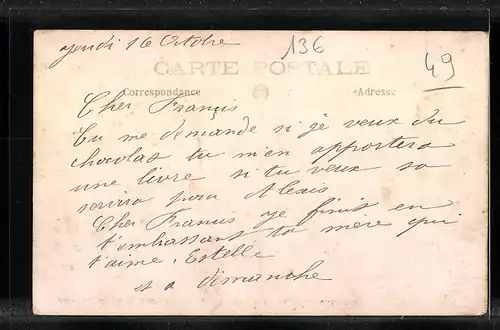 jeudi 16 Octobre
136
CARTE POSTALE
49
Correspondance
Adresse
Cher Francis
Tu me demande si je veux du
chocolas tu m'en apportera
une livre si tu veux sa
servira pour Alexis
Cher Francis je finis en
t'embrassant ta mère qui
t'aime. Estelle
et a dimanche